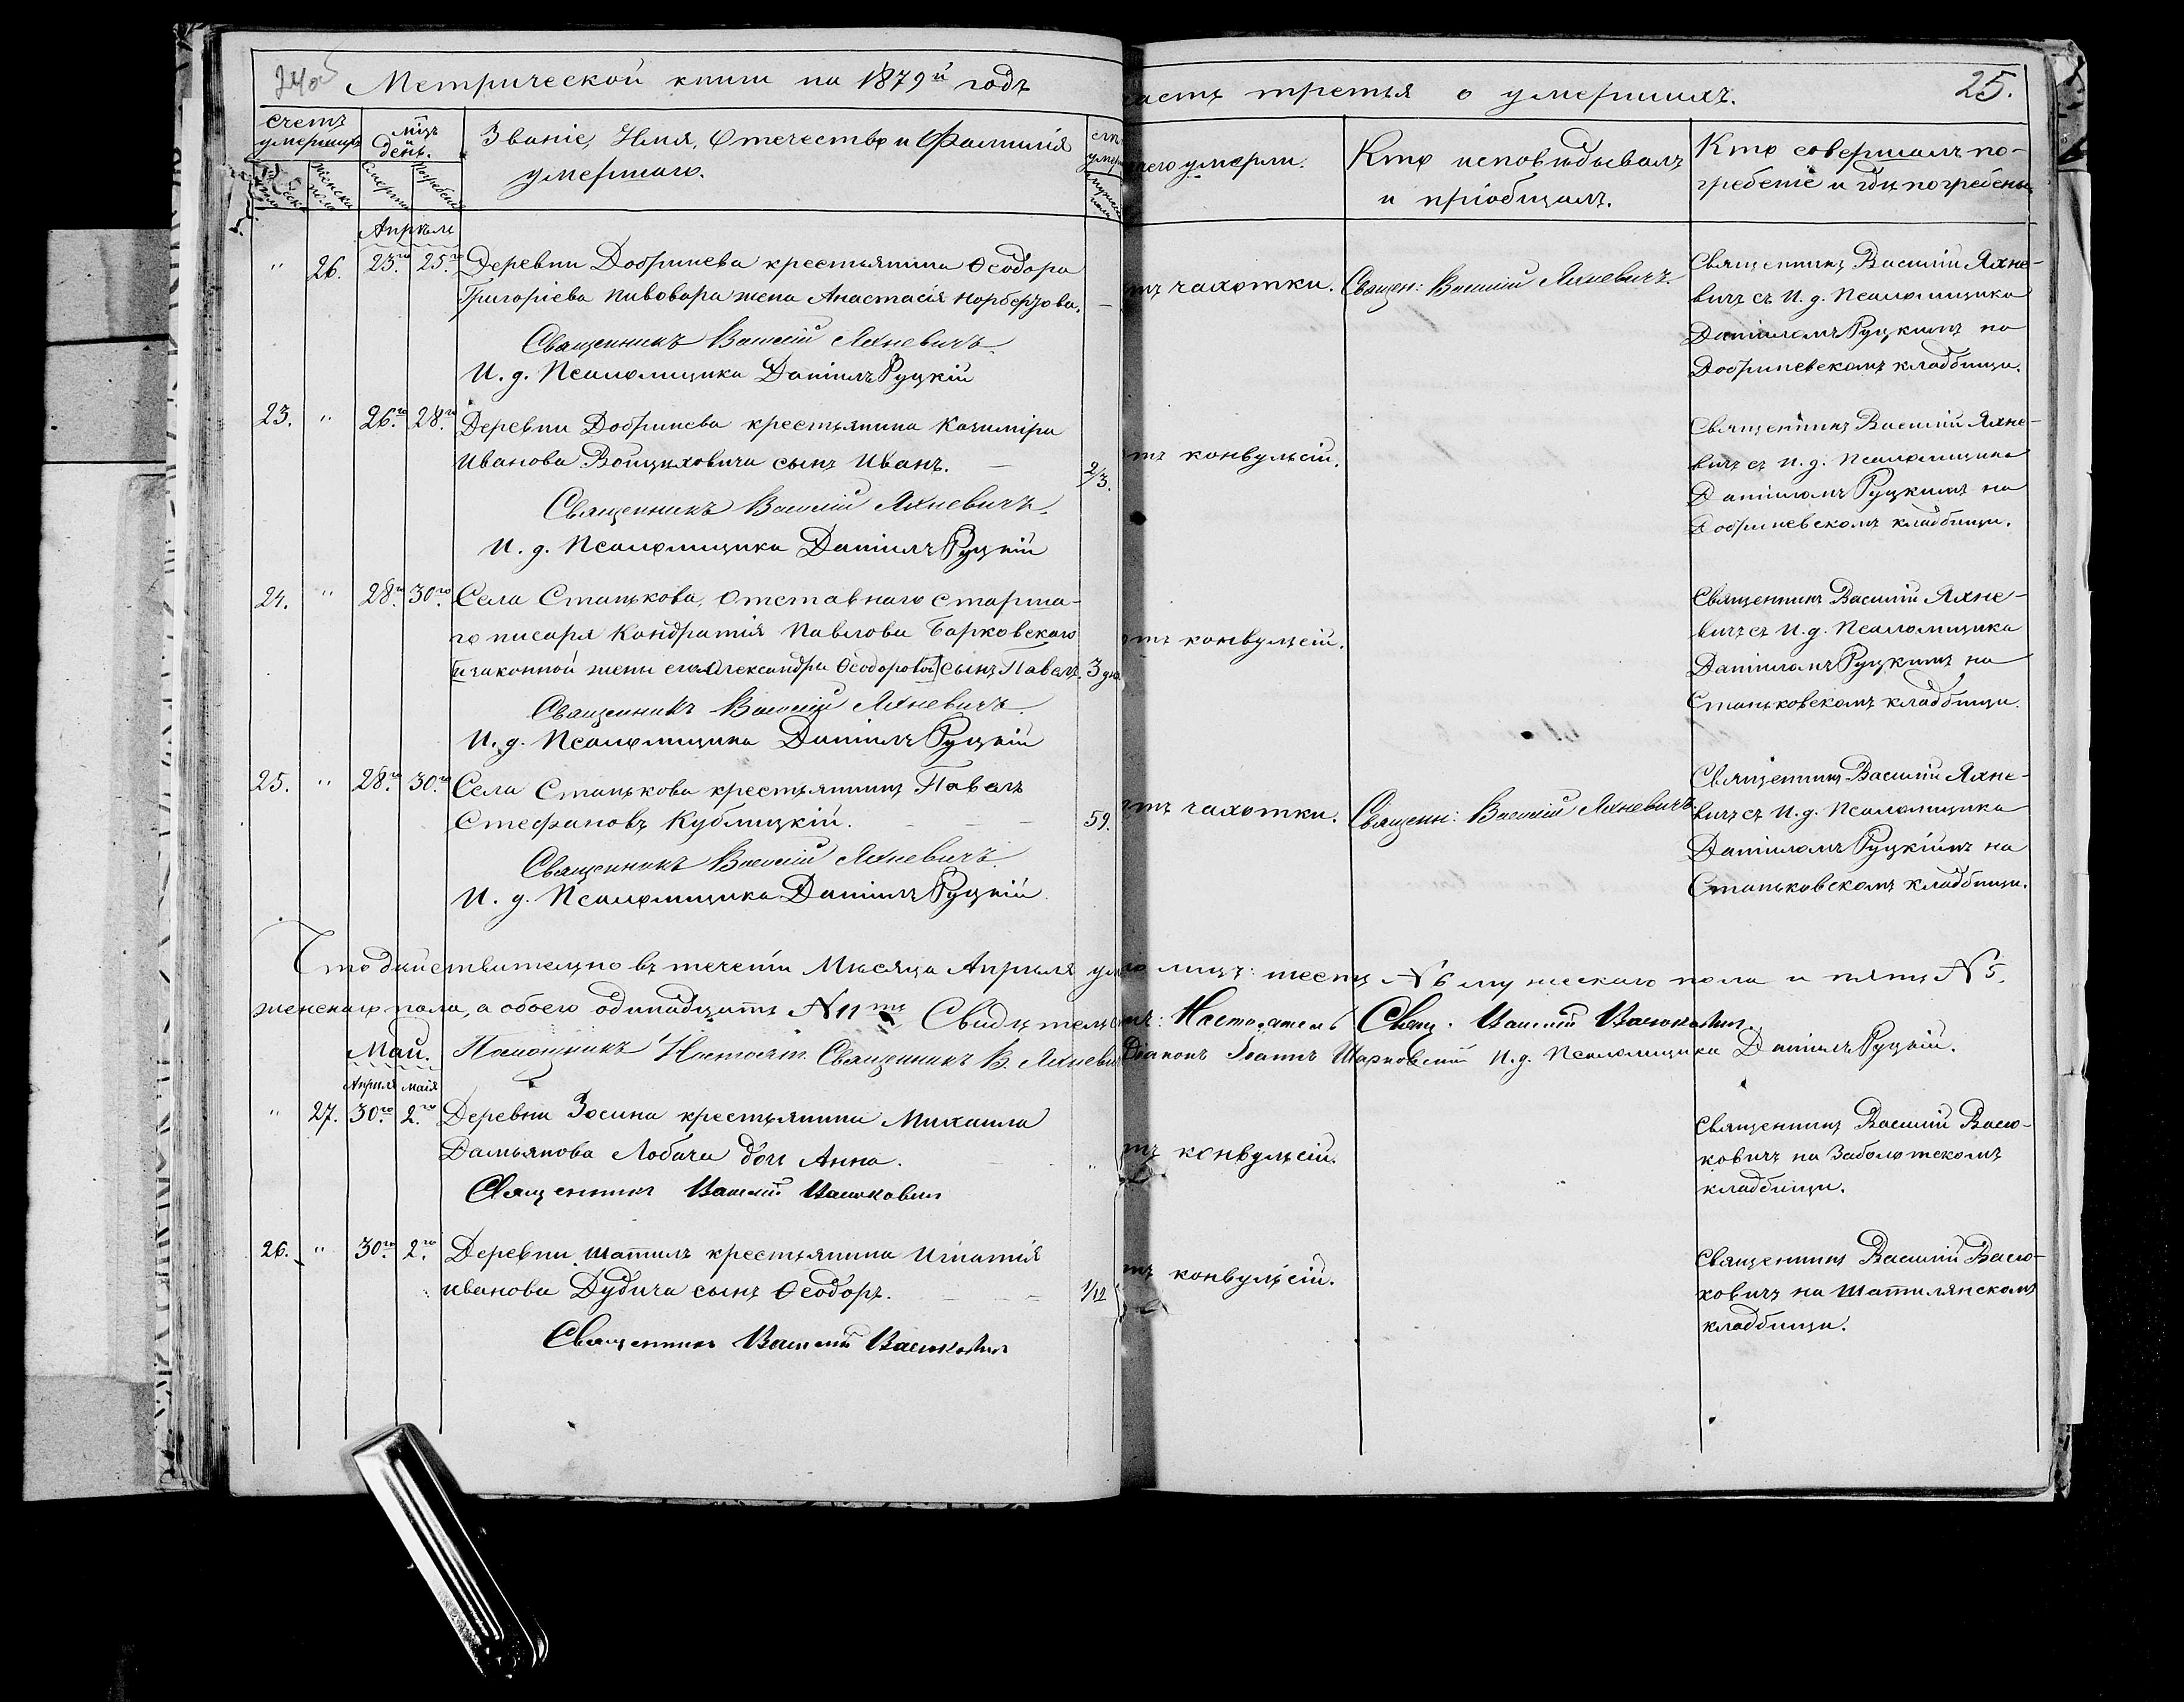 Метрической книги на 1879й годъ
асть третья о умершихъ.
25.
счетъ умершихъ
мцъ и день.
Званіе, Имя, Отчество и Фамилія
умершаго.
чего умерли.
Кто исповѣдывалъ
и пріобщалъ.
Кто совершалъ по-
гребеніе и гдѣ погребены
Женска пола
Смерти
Погребенія
Апрѣль
" 26. 23го 25го Деревни Добринева крестьянина Ѳеодора
Григоріева Пивовара жена Анастасія Норбертова. —
Священникъ Василій Яхневичъ.
И. д. Псаломщика Даніилъ Руцкій
тъ чахотки.
Священ: Василій Яхневичъ.
Священникъ Василій Яхне-
вичъ съ И. д. Псаломщика
Даніиломъ Руцкимъ на
Добриневскомъ кладбищи.
23. " 26го 28го Деревни Добринева крестьянина Казиміра
Иванова Войцѣховича сынъ Иванъ. — 2/3.
Священникъ Василій Яхневичъ.
И. д. Псаломщика Даніилъ Руцкій
тъ конвульсій.
Священникъ Василій Яхне-
вичъ съ И. д. Псаломщика
Даніиломъ Руцкимъ на
Добриневскомъ кладбищи.
24. " 28го 30го Села Станькова, Отставнаго старша-
го писаря Кондратія Павлова Барковскаго
и законной жены его Александры Ѳеодоровой сынъ Павелъ. 3 дня
Священникъ Василій Яхневичъ.
И. д. Псаломщика Даніилъ Руцкій
отъ конвульсій.
Священникъ Василій Яхне-
вичъ съ И. д. Псаломщика
Даніиломъ Руцкимъ на
Станьковскомъ кладбищи.
25. " 28го 30го Села Станькова крестьянинъ Павелъ
Стефановъ Кублицкій. — — — 59.
Священникъ Василій Яхневичъ.
И. д. Псаломщика Даніилъ Руцкій.
отъ чахотки.
Священн: Василій Яхневичъ.
Священникъ Василій Яхне-
вичъ съ И. д. Псаломщика
Даніиломъ Руцкимъ на
Станьковскомъ кладбищи.
Что дѣйствительно въ теченіи Мѣсяца Апрѣля ум ло лицъ: шесть №6 мужескаго пола и пять №5.
женскаго пола, а обоего одинадцать №11ть Свидѣтельс мъ: Настоятель Свящ. Василій Васюковичъ
Май. Помощникъ Настоят. Священникъ В. Яхневичъ Діаконъ Іоаннъ И. д. Псаломщика Даніилъ Руцкій.
Апрѣля маія
" 27. 30го 2го Деревни Зосина крестьянина Михаила
Дамьянова Лобача дочь Анна. "
Священникъ Василій Васюковичъ
тъ конвульсій.
Священникъ Василій Васю-
ковичъ на Заболотскомъ
кладбищи.
26. " 30го 2го Деревни Шатилъ крестьянина Игнатія
Иванова Дудича сынъ Ѳеодоръ. — — — 1/12
Священникъ Василій Васюковичъ
тъ конвульсій.
Священникъ Василій Васю-
ковичъ на Шатилянскомъ
кладбищи.